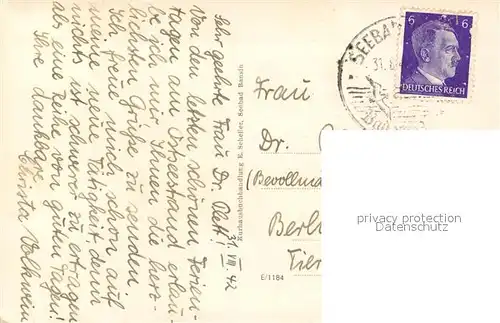 Sehr geehrte Frau Dr. Olett!
31. VIII. 42
Von den letzten schönen Ferien-
tagen am Ostseestrand erlau-
be ich mir Ihnen die herz-
lichsten Grüße zu senden
Ich freue mich schon auf
meine neue Tätigkeit denn
nichts ist schwerer zu ertragen
als eine Reihe von guten Tagen!
Ihre dankbare
Christa Volkwein
Kurhausbuchhandlung E. Scheffer, Seebad Bansin
E/1184
SEEBAD
31.8.
6 6
DEUTSCHES REICH
Frau
Dr.
(Bevollma
Berl
Tier
privacy protection
www.ansichtskartenversand.com